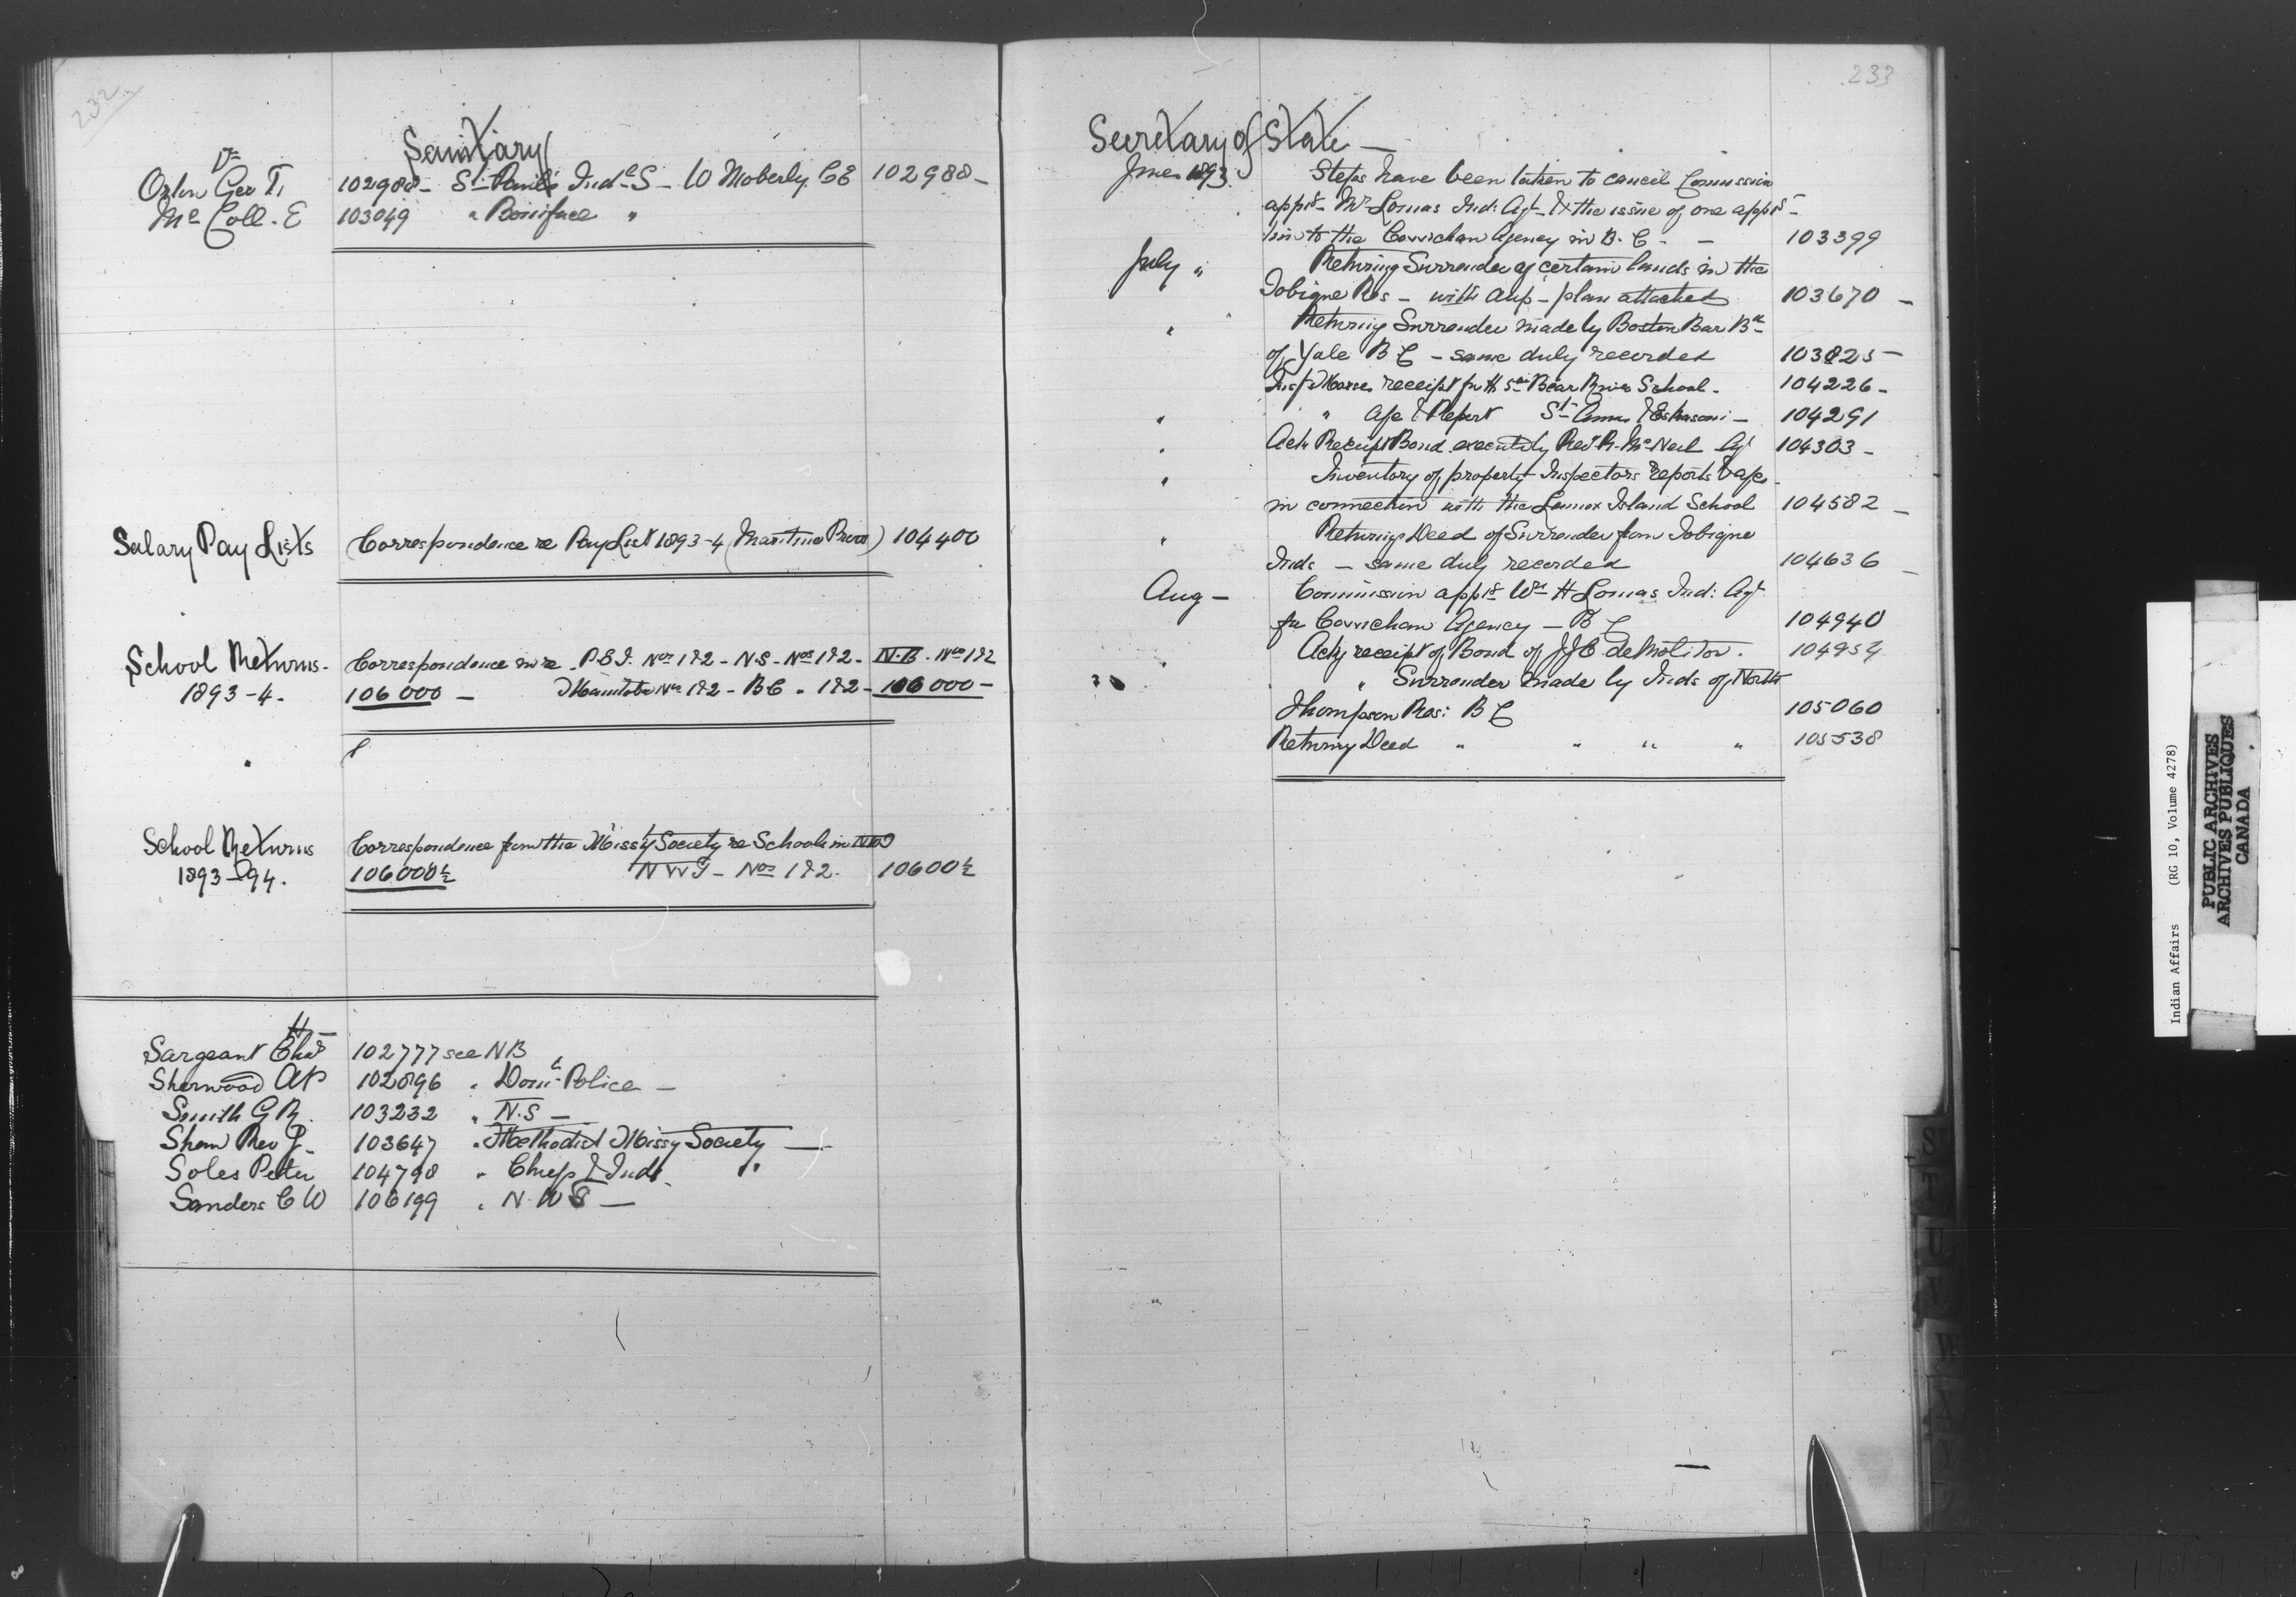 232
Sanitary
Dr
Orton Geo T. 102988 - St Paul's Indl S - W Moberly C E 102988 -
McColl. E 103049 " Boniface "
Salary Pay Lists Correspondence re Pay List 1893-4 (Maritime Provs) 104400
School Returns. Correspondence in re. P.E.I. Nos 1&2 - N.S - Nos 1&2 - N.B. Nos 1&2
1893-4. 106000 - Manitoba Nos 1&2 - B C " 1&2 - 106000 -
"
School Returns Correspondence from the Missy Society re Schools in
1893-94. 106000½ N W T - Nos 1&2. 10600½
H -
Sargeant Chas 102777 see N B
Sherwood A P 102896 " Domn Police -
Smith G R. 103232 " N.S -
Shaw Rev J - 103647 " Methodist Missy Society -
Soles Peter 104798 " Chiefs & Inds. "
Sanders C W 106199 " N. W T -
233
Secretary of State -
June 1893. Steps have been taken to cancel Commission
apptg - Mr Lomas Ind: Agt - & the issue of one apptg -
him to the Cowichan Agency in B. C - - 103399
July " Returning Surrender of certain lands in the
Tobique Res - with dup - plan attached 103670 -
" Returning Surrender made by Boston Bar Bd -
of Yale B C - same duly recorded 103825 -
receipt for Bear River School - 104226 -
" " & Report St Anns & Eskasoni - 104291
" Ack Receipt Bond executed by Revd R. McNeil Agt 104303 -
" Inventory of property Inspectors reports &
in connection with the Lennox Island School 104582 -
" Returning Deed of Surrender from Tobique
Inds - same duly recorded 104636 -
Aug - Commission apptg Wm H Lomas Ind: Agt
for Cowichan Agency - B C 104940
" Ackg receipt of Bond of J J E de Molitor. 104954
" " Surrender made by Inds of North
Thompson Res: B C 105060
Returning Deed " " " " 105538
S
T
U
V
W
X
Y
Indian Affairs (RG 10, Volume 4278)
PUBLIC ARCHIVES
ARCHIVES PUBLIQUES
CANADA